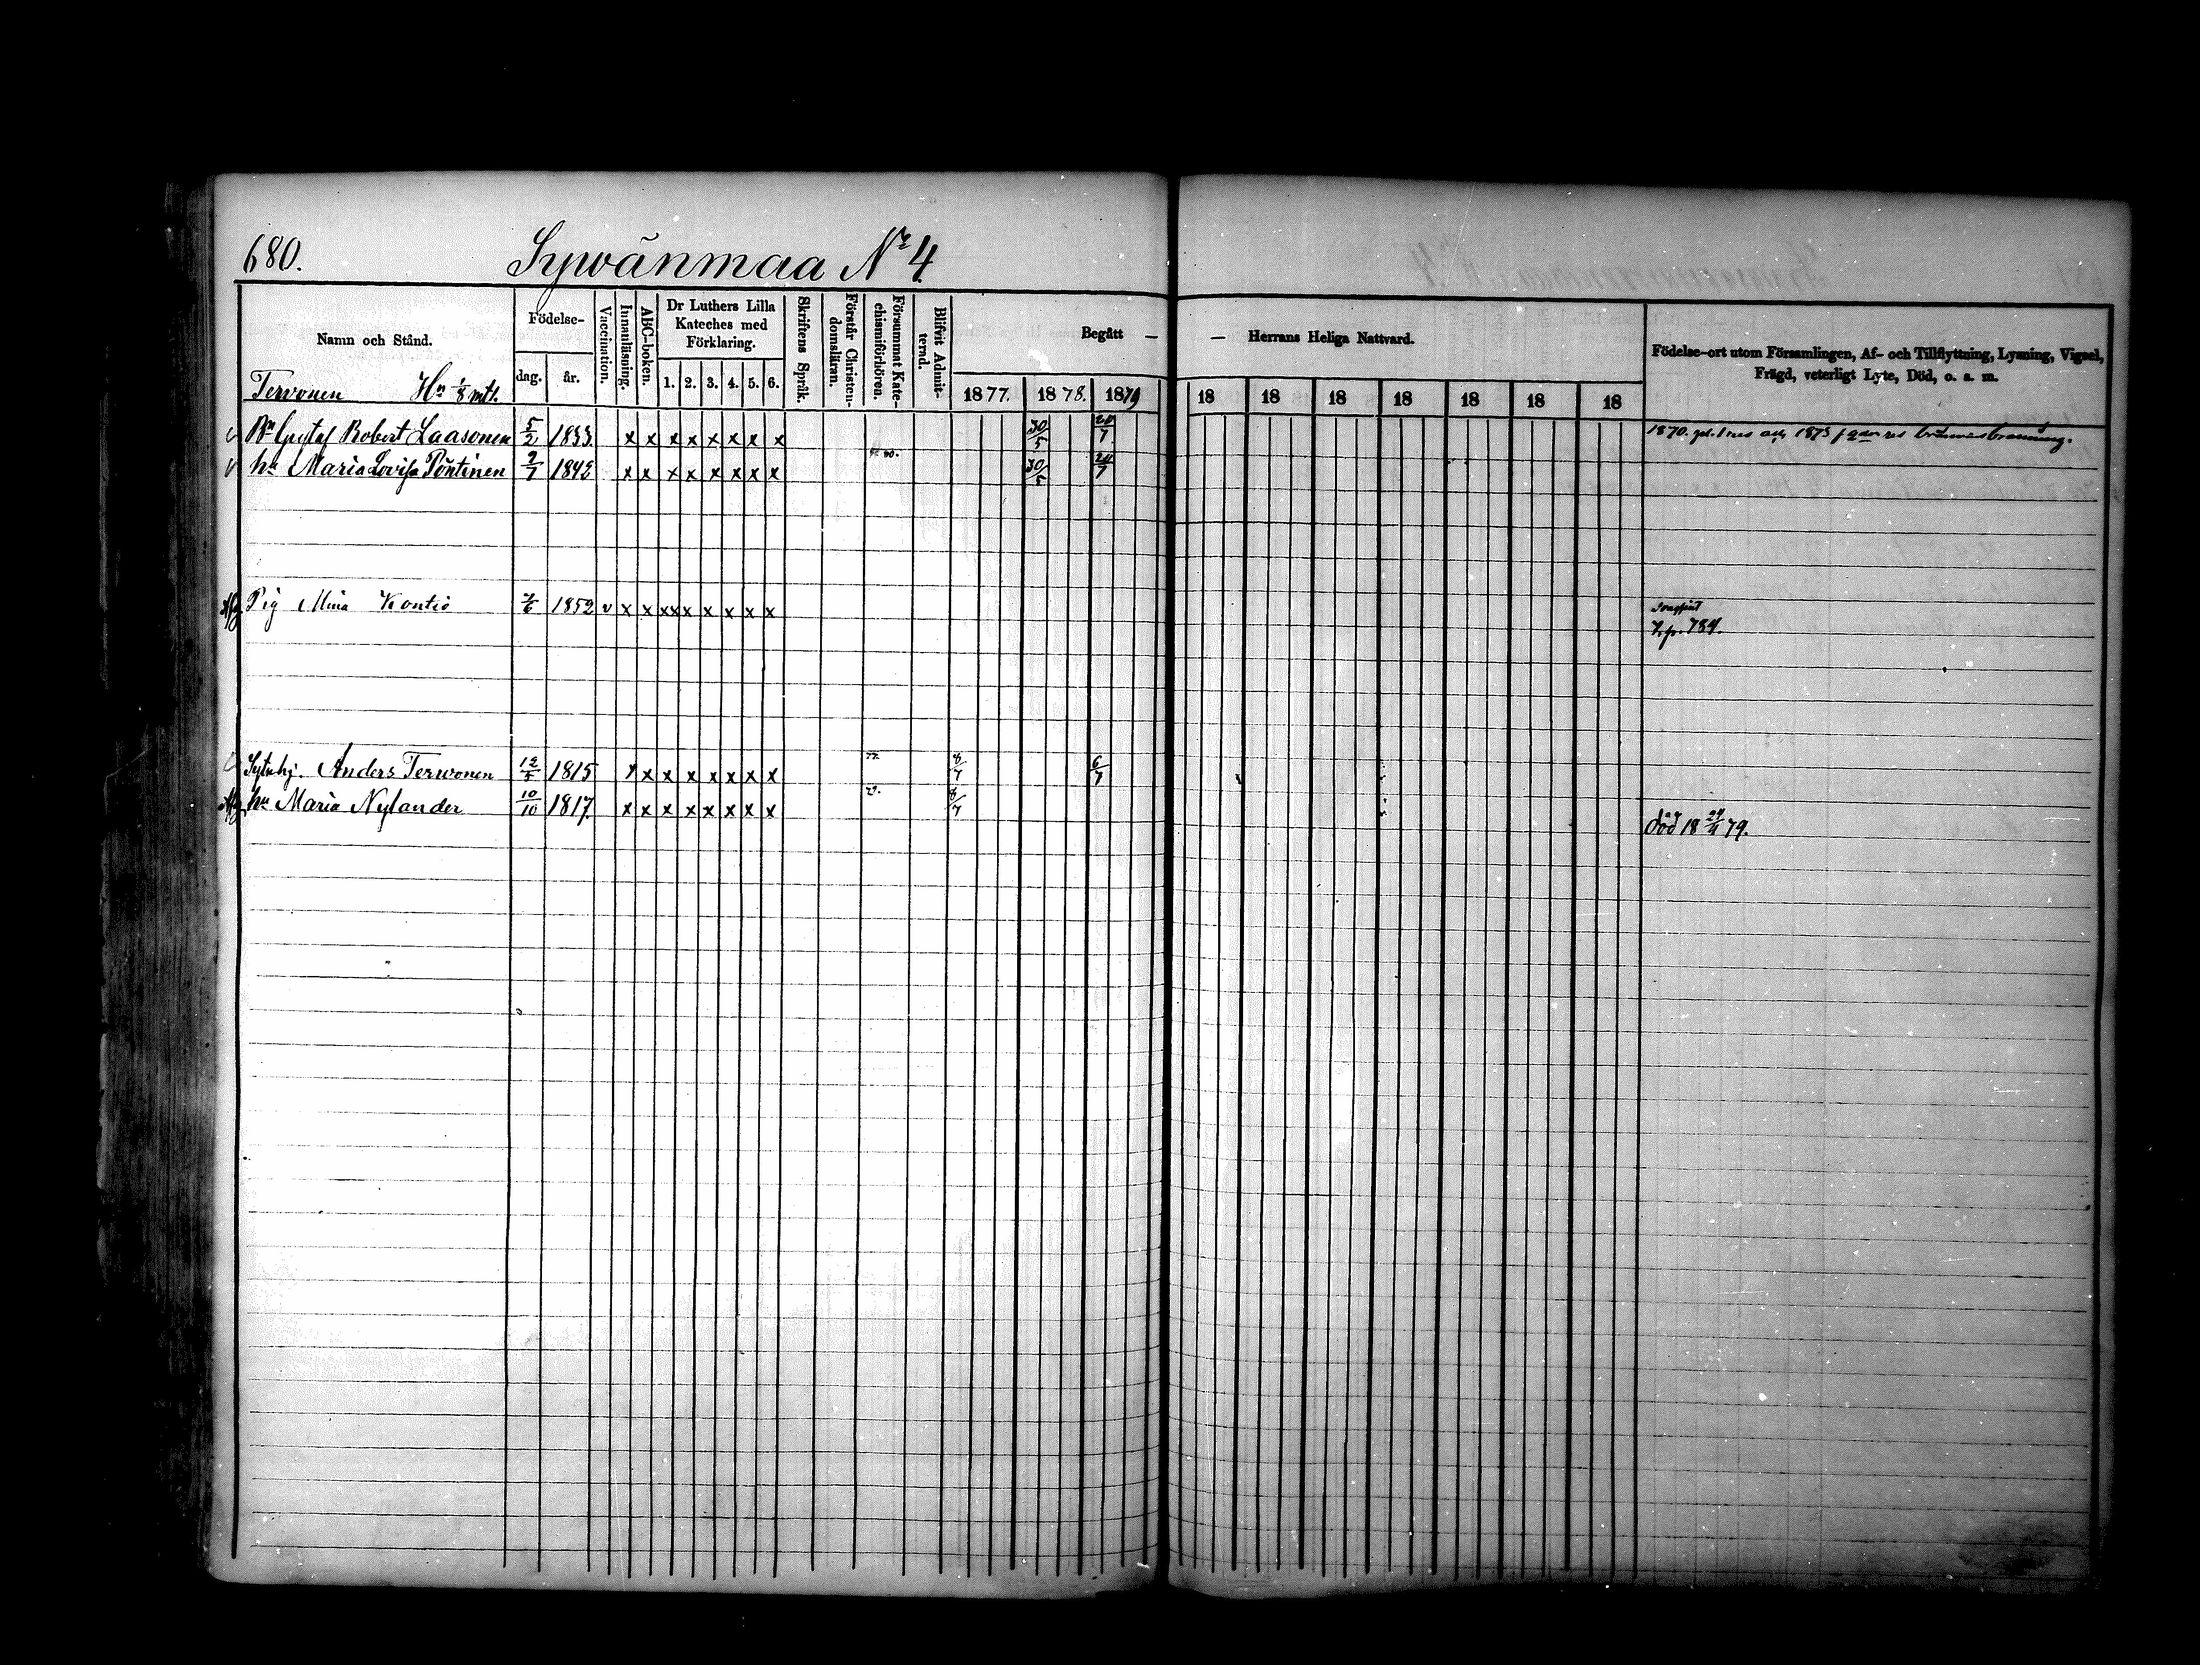 680. Sywänmaa Nr 4
Namn och Stånd.
Födelse-
dag. år.
Vaccination.
Innanläsning.
ABC-boken.
Dr Luthers Lilla Kateches med Förklaring.
1. 2. 3. 4. 5. 6.
Skriftens Språk.
Förstår Christen-domsläran.
Försummat Kate-chismiförhören.
Blifvit Admit-terad.
Begått — — Herrans Heliga Nattvard.
1877. 1878. 1879 18 18 18 18 18 18 18
Födelse-ort utom Församlingen, Af- och Tillflyttning, Lysning, Vigsel,
Frägd, veterligt Lyte, Död, o. a. m.
Tervonen Hn 1/8 mtl.
Bn Gustaf Robert Laasonen 5/2 1833. x x x x x x x x 30/5 20/7 1870. 1873
v hu Maria Lovisa Pöntinen 2/7 1842 x x x x x x x x 30/5 20/7
Afg. Pig Mina Kontio 7/6 1852 v x x xxx x x x x
T. p. 784.
Sytnhj. Anders Terwonen 12/5 1815 x x x x x x x x 77. 8/7 6/7
Afg. hu Maria Nylander 10/10 1817. x x x x x x x x 8/7
död 18 24/4 79.